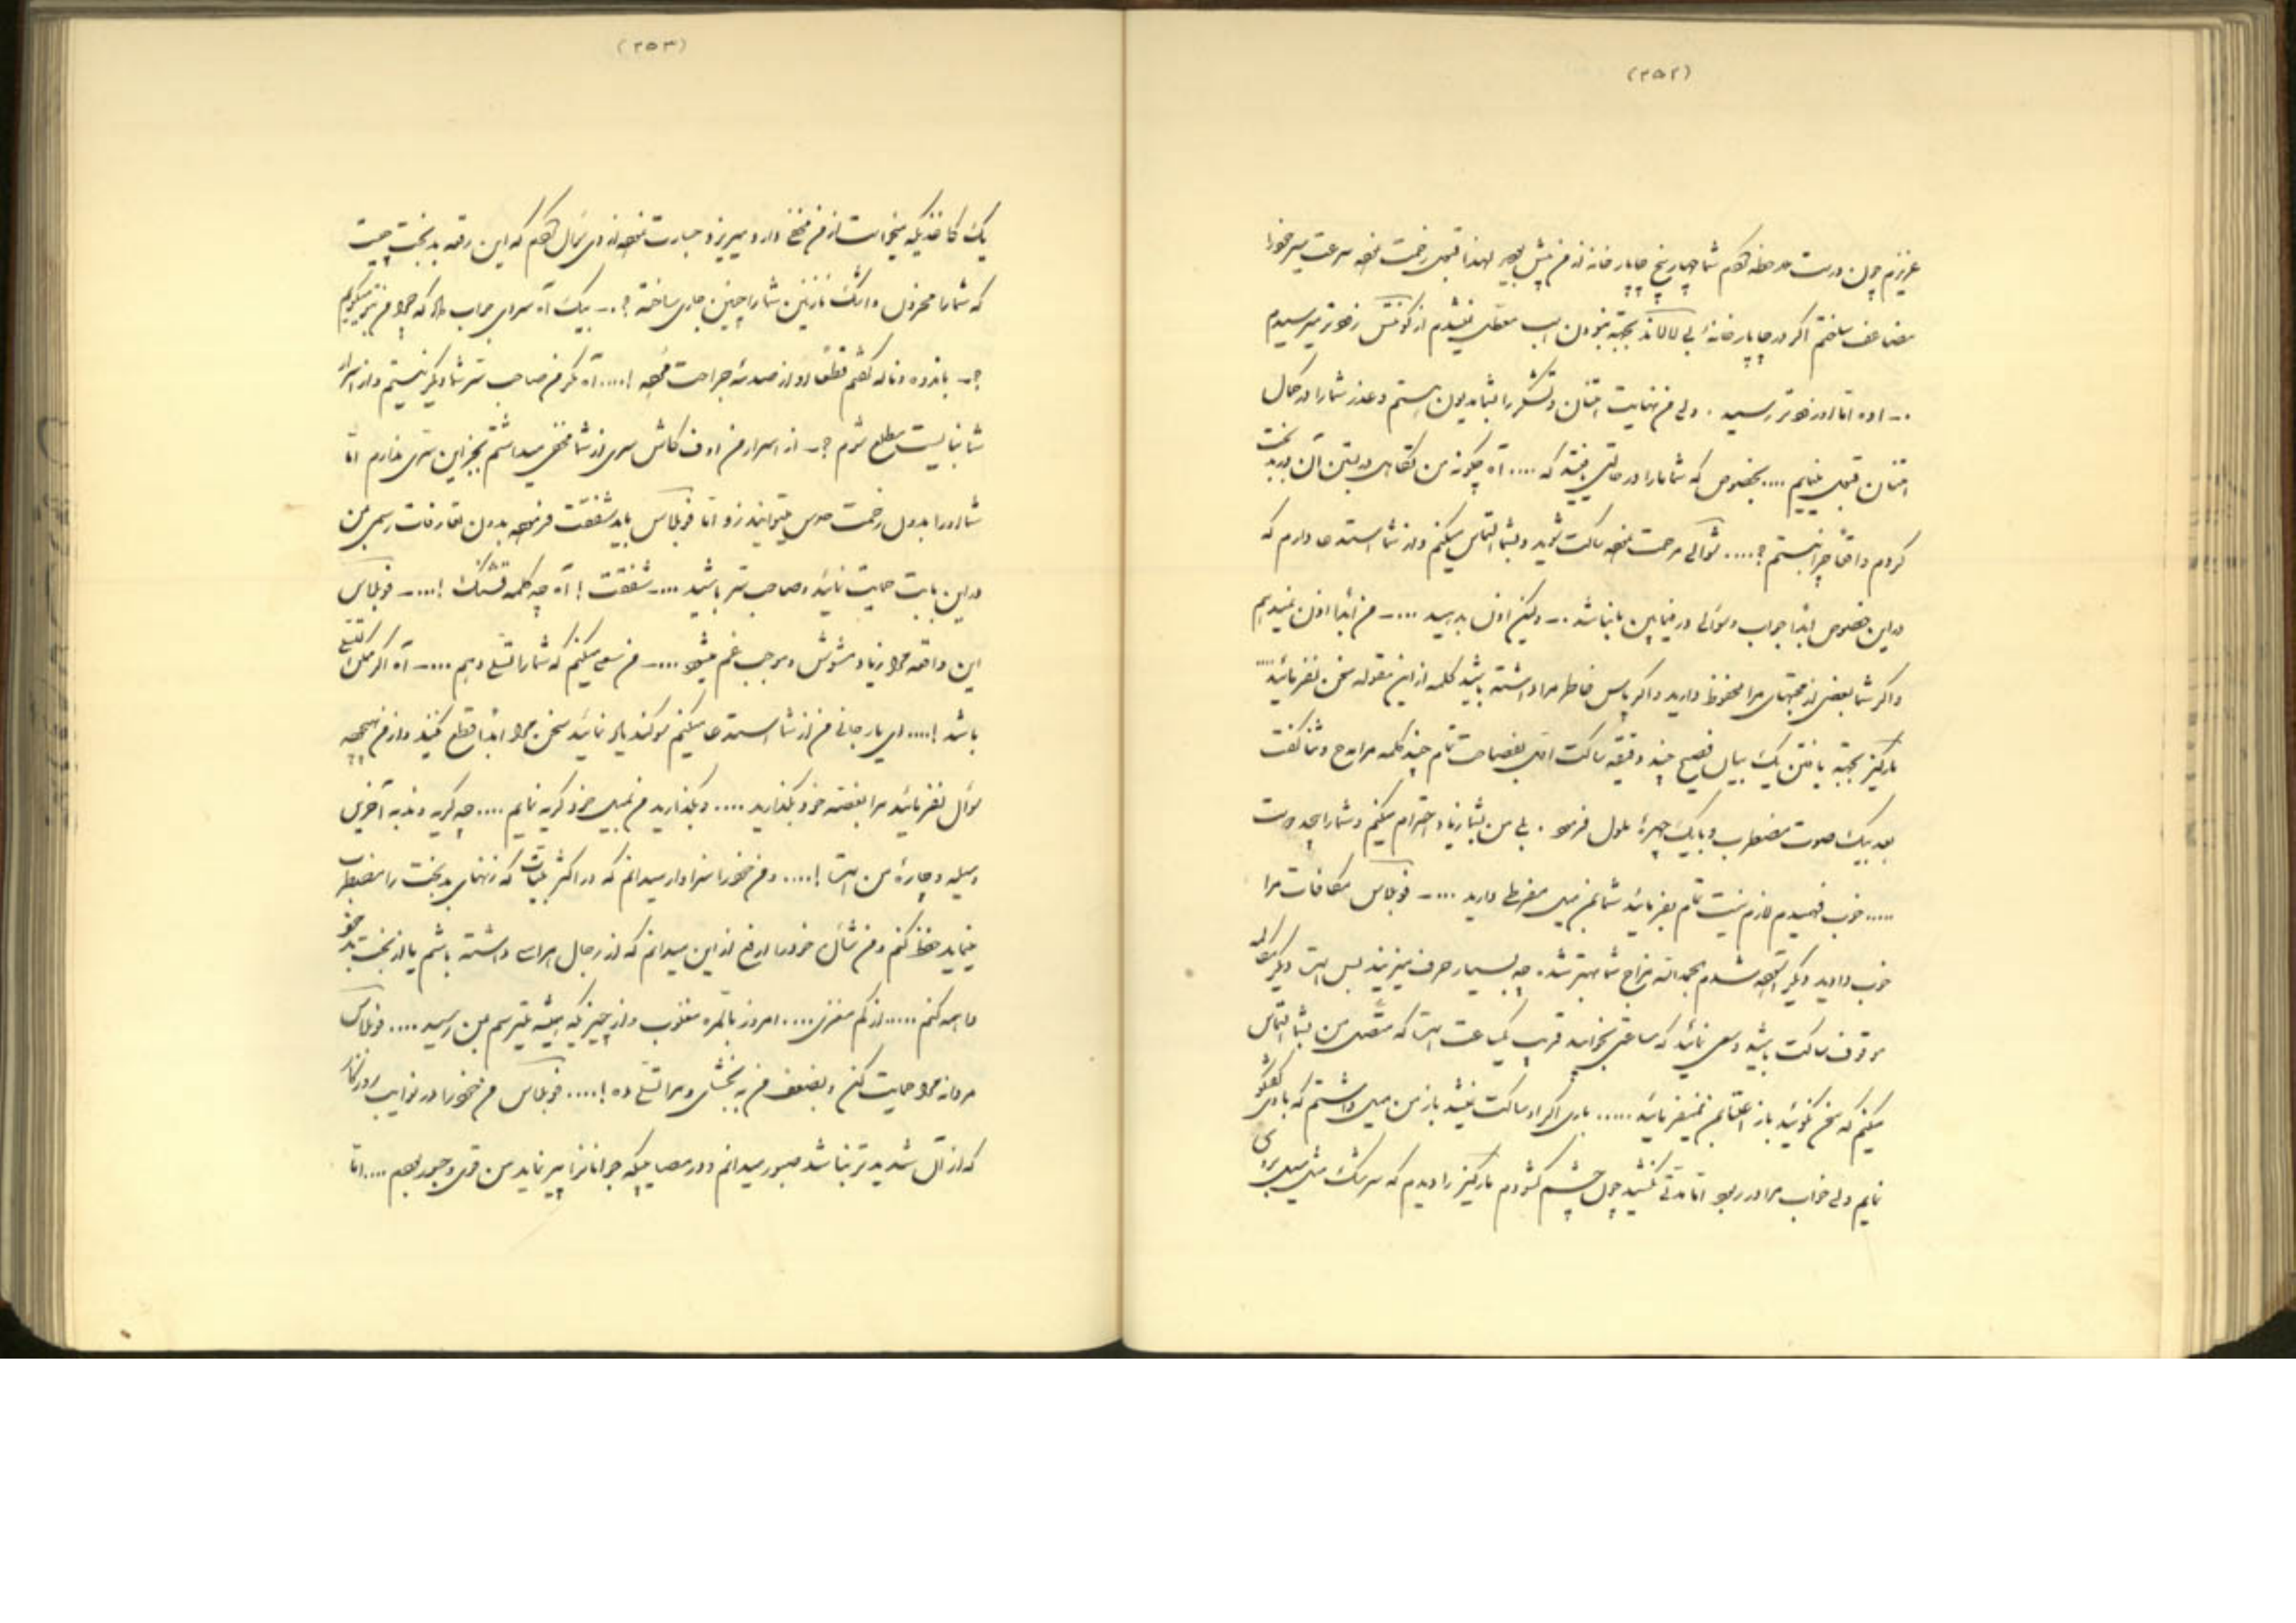 (۲۵۲)
عزیزم چون درست ملاحظه کردم شما چهار پنج چاپارخانه از من پیش بودید لهذا قبول زحمت نموده سرعت سیر خود را
مضاعف ساختم اگر در چاپارخانه بجهة نبودن اسب معطل نمیشدم از زودتر میرسیدم
.ـ اوه اما او زودتر رسید . ولی من نهایت امتنان و تشکر را بشما مدیون هستم و عذر شما را در کمال
امتنان قبول مینمایم .... بخصوص که شما ما را در حالتی یافتید که .... آه چگونه من در بدبخت
کردم واقعاً چرا نیستم ؟.... شوالی مرحمت نموده ساکت شوید و بشما التماس میکنم و از شما استدعا دارم که
در این خصوص ابداً جواب و سوالی در میان نباشد .ـ ولیکن اذن بدهید ....ـ من ابداً اذن نمیدهم
و اگر شما بعضی از محبتهای مرا محفوظ دارید و اگر پاس خاطر مرا داشته باشید کلمه از این مقوله سخن نفرمائید ....
مارکیز بجهة یافتن یک بیان فصیح چند دقیقه ساکت بفصاحت تمام چند کلمه مرا مدح و ثنا گفت
بعد بیک صوت مضطرب و با یک چهرهٔ ملول فرمود . بلی من بشما زیاد احترام میکنم و شما را بجد دوست
..... خوب فهمیدم لازم نیست تمام بفرمائید شما بمن میل مفرطی دارید ....ـ فوبلاس مکافات مرا
خوب دادید دیگر آسوده شدم بحمدالله مزاج شما بهتر شده چه بسیار حرف میزنید بس است دیگر مکالمه
موقوف ساکت باشید و سعی نمائید که ساعتی بخوابید قریب یکساعت است که متصل من بشما التماس
میکنم که سخن نگوئید باز اعتنا بمن نمیفرمائید ..... باری اگر او ساکت نمیشد باز من میل داشتم که با وی گفتگوی
نمایم ولی خواب مرا در ربود اما مدتی نکشید چون چشم گشودم مارکیز را دیدم که سرشک مثل سیل بر روی
(۲۵۳)
یک کاغذیکه میخواست از من مخفی دارد میریزد جسارت نموده از وی سؤال کردم که این رقعه بدبخت چیست
که شما را محزون و اشک نازنین شما را چنین جاری ساخته ؟.ـ بیک آه سردی جواب داد که چرا من نمیگویم
؟ـ باندوه و ناله گفتم قطعاً او از صدمهٔ جراحت نموده !.... آه مگر من صاحب سر شما دیگر نیستم و از اسرار
شما نبایست مطلع شوم ؟ـ از اسرار من اوف کاش سری از شما مخفی میداشتم بجز این سری ندارم اما
شما او را بدون زحمت حدس میتوانید زد اما فوبلاس باید شفقت فرموده بدون تعارفات رسمی من
در این بابت حمایت نمائید و صاحب سر باشید ....ـ شفقت ! آه چه کلمه قشنگ !....ـ فوبلاس
این واقعه مرا زیاد مشوش و موجب غم میشود ....ـ من سعی میکنم که شما را تسلی دهم ....ـ آه اگر ممکن تسلی
باشد !.... ای یار جانی من از شما استدعا میکنم سوگند یاد نمائید سخن مرا ابداً قطع نکنید و از من هیچ
سؤال نفرمائید مرا بغصه خود بگذارید .... و بگذارید من بمیل خود گریه نمایم .... چه گریه و ندبه آخرین
وسیله و چارهٔ من است !.... و من خود را سزاوار میدانم که در اکثر بلیات که زنهای بدبخت را مضطرب
مینماید حفظ کنم و من شأن خود را ارفع از این میدانم که از رجال هراسی داشته باشم یا از بخت بد خود
واهمه کنم ..... از کم مغزی .... امروز بالمره مغلوب و از چیزیکه همیشه میترسیم بمن رسید .... فوبلاس
مردانه مرا حمایت کن و بضعف من ببخشای و مرا تسلی ده !.... فوبلاس من خود را در نوایب روزگار
که از آن شدیدتر نباشد صبور میدانم و در مصایبیکه جوانان را پیر نماید من قوی و جسور بودم .... اما